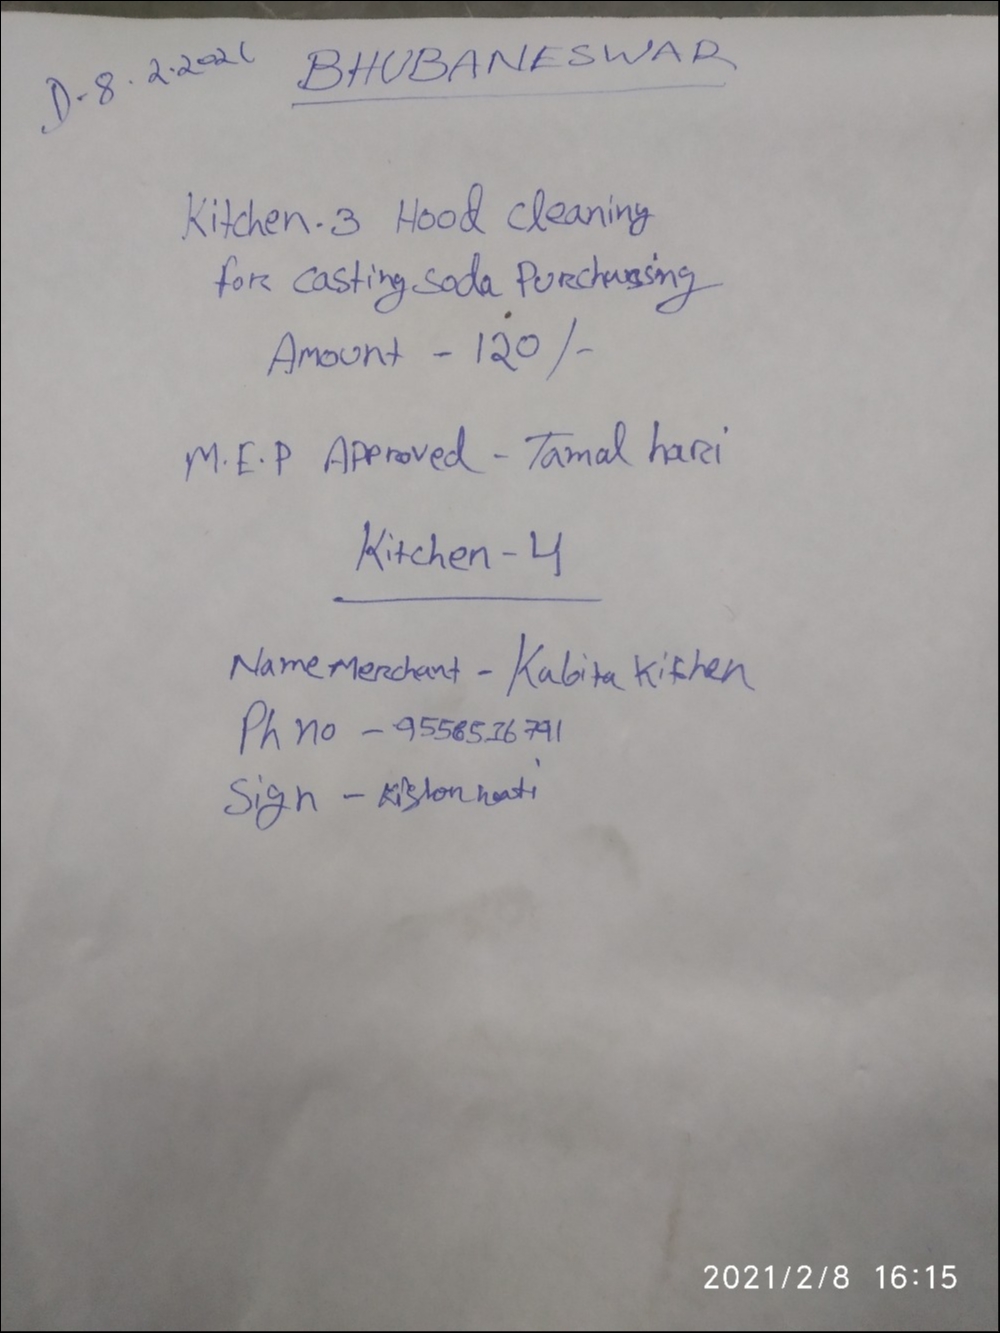 D-8.2.2021 BHUBANESWAR
Kitchen.3 Hood cleaning
for casting soda Purchasing
Amount - 120/-
M.E.P Approved - Tamal hari
Kitchen-4
Name Merchant - Kabita Kitchen
Ph no - 9556516791
Sign -
2021/2/8 16:15